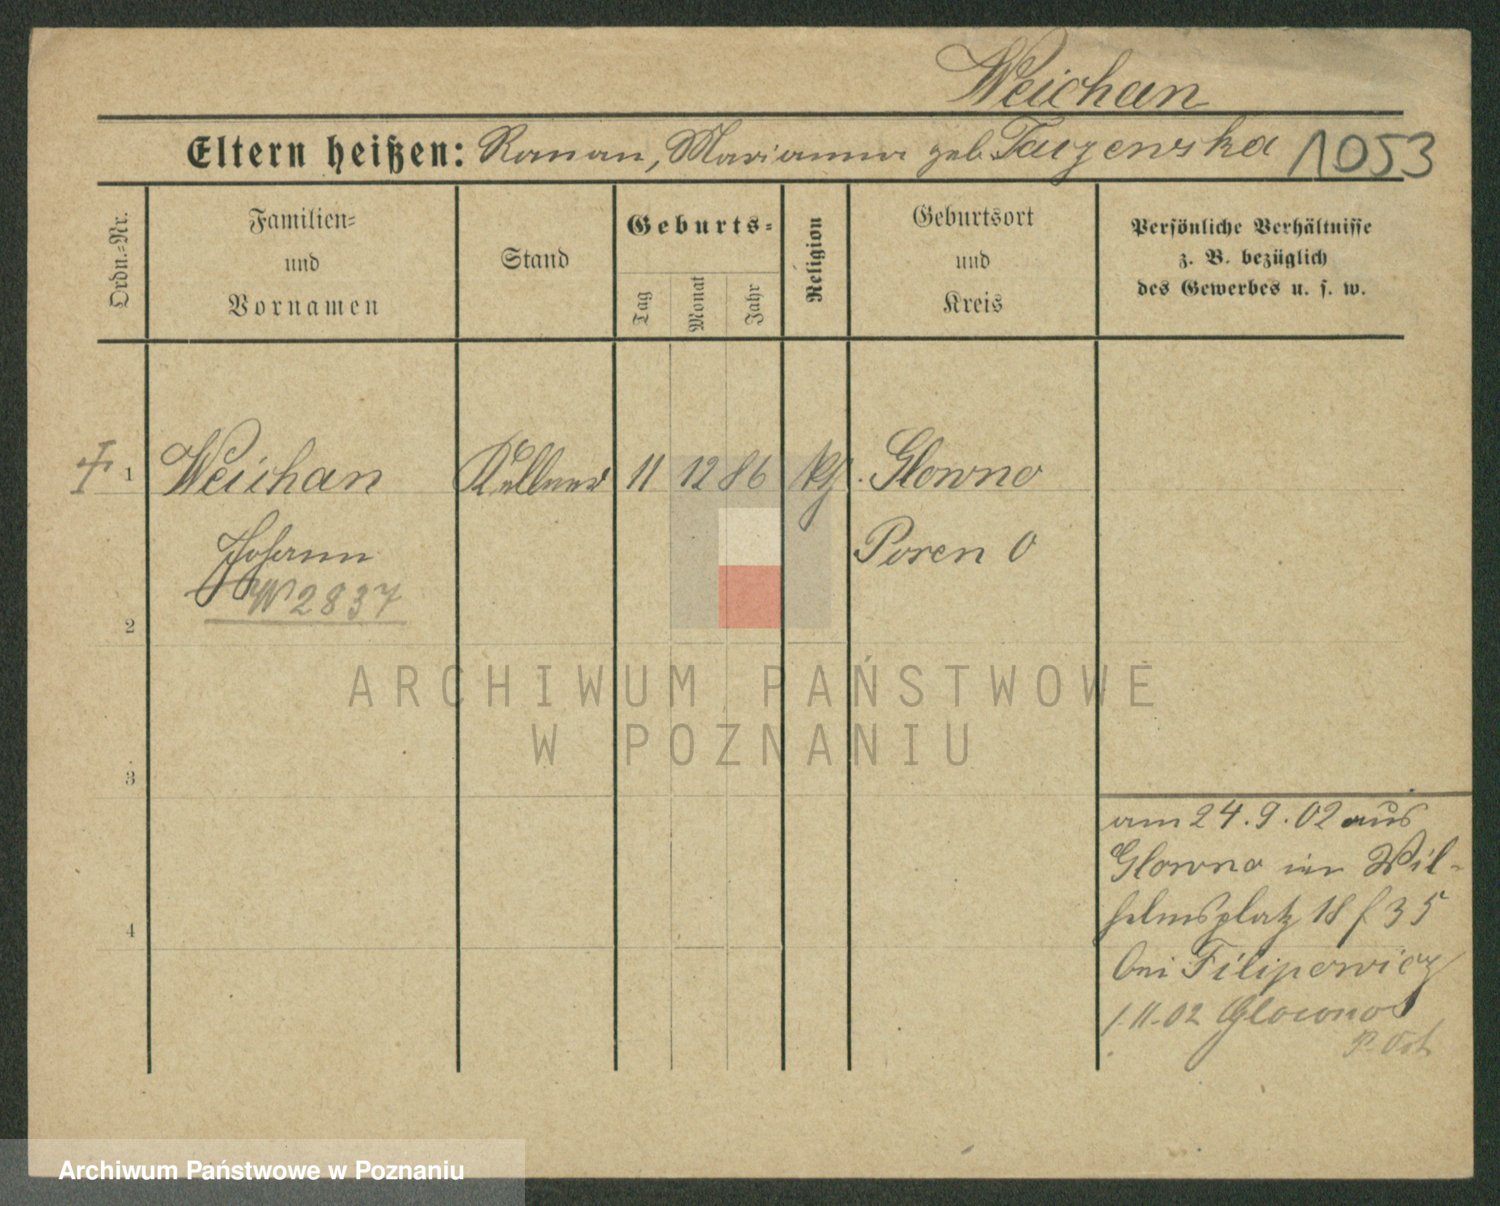 Weichan
Eltern heißen: Roman, Marianna geb. Tauzenska 1053
Ordn.=Nr.
Familien= und Vornamen
Stand
Geburts=
Tag
Monat
Jahr
Religion
Geburtsort und Kreis
Persönliche Verhältnisse
z. B. bezüglich
des Gewerbes u. s. w.
1 Weichan Kellner 11 12 86 kg. Glowno
Johann Posen O
W2837
2
ARCHIWUM PAŃSTWOWE
W POZNANIU
3
am 24.9.02 aus
Glowno in Wil-
helmsplatz 18 f 35
4
bei Filipowicz
1.11.02 Glowno
P. Ost
Archiwum Państwowe w Poznaniu